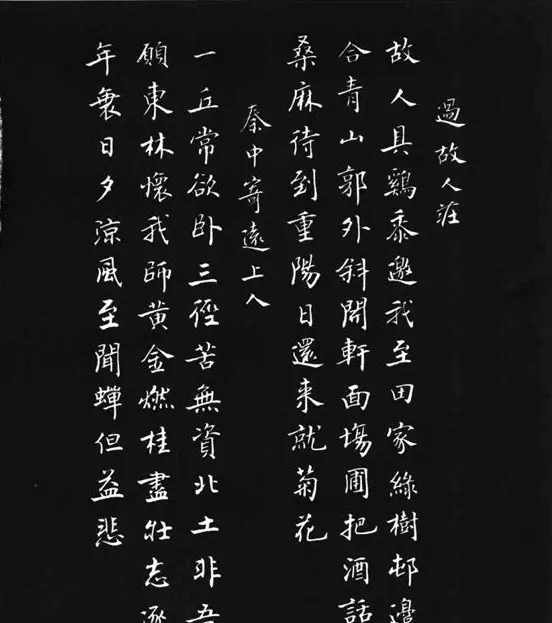 過故人莊
故人具鷄黍邀我至田家綠樹邨邊
合青山郭外斜開軒面場圃把酒話
桑麻待到重陽日還来就菊花
秦中寄遠上人
一丘常欲卧三徑苦無資北土非吾
願東林懷我師黄金燃桂盡壮志逐
年衰日夕涼風至聞蟬但益悲